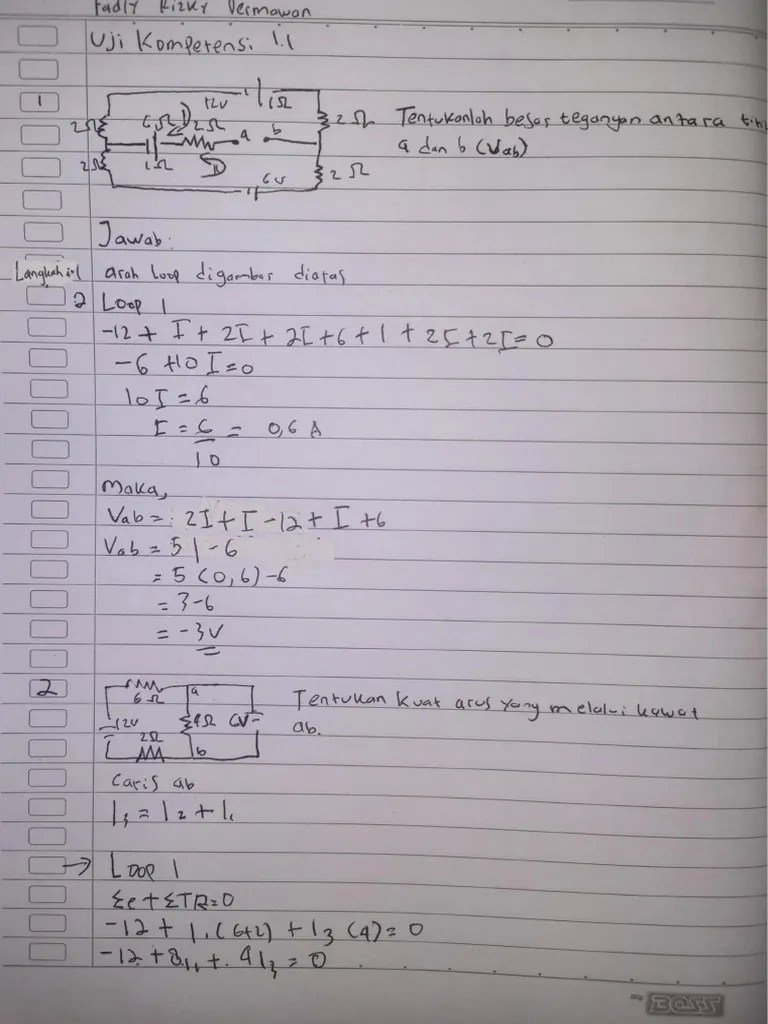 Fadly Rizky Dermawan
Uji Kompetensi 1.1
1
12V 1Ω
2Ω 6Ω 2Ω a b 2Ω
Tentukanlah besar tegangan antara titi
a dan b (Vab)
2Ω 1Ω 6V 2Ω
Jawab:
Langkah:1 arah loop digambar diatas
2 Loop 1
-12 + I + 2I + 2I + 6 + 1 + 2I + 2I = 0
-6 + 10 I = 0
10 I = 6
I = 6 = 0,6 A
10
Maka,
Vab = : 2I + I - 12 + I + 6
Vab = 5 I - 6
= 5 (0,6) - 6
= 3 - 6
= -3V
2
6Ω a
12V 4Ω 6V
2Ω b
Tentukan kuat arus yang melalui kawat
ab.
Garis ab
I3 = I2 + I1
→ Loop 1
Σe + ΣIR = 0
-12 + I1 (6+2) + I3 (4) = 0
-12 + 8I1 + 4I3 = 0
BOSS